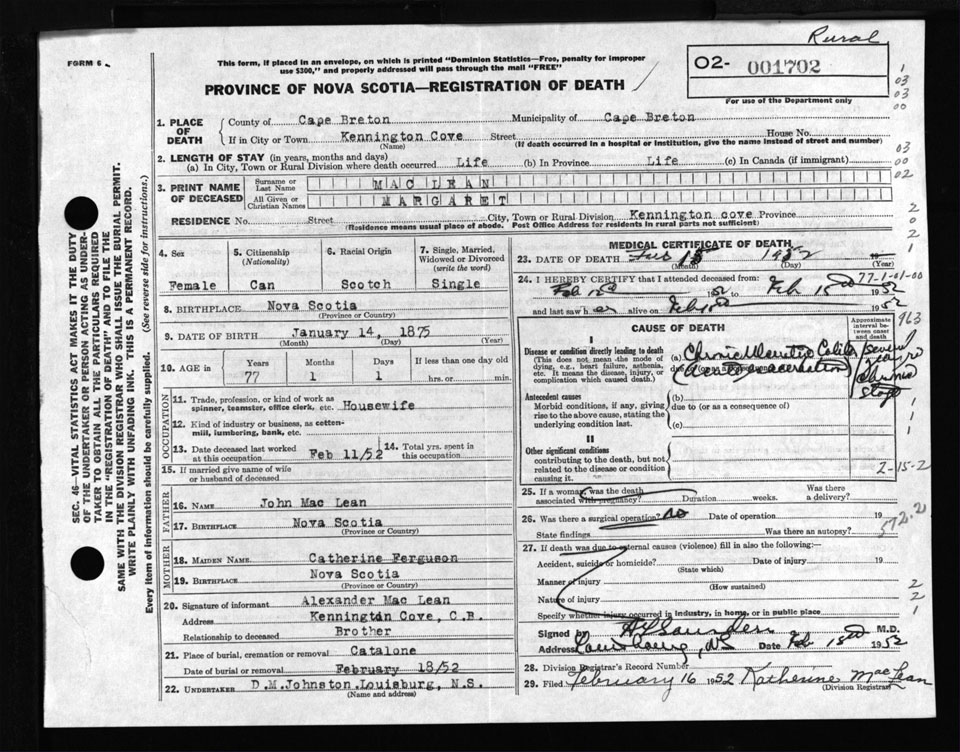 Rural
FORM 6
This form, if placed in an envelope, on which is printed "Dominion Statistics—Free, penalty for improper
use $300," and properly addressed will pass through the mail "FREE"
PROVINCE OF NOVA SCOTIA—REGISTRATION OF DEATH
02- 001702
For use of the Department only
1. PLACE OF DEATH
County of Cape Breton Municipality of Cape Breton
If in City or Town Kennington Cove Street House No.
(Name) (If death occurred in a hospital or institution, give the name instead of street and number)
2. LENGTH OF STAY (in years, months and days)
(a) In City, Town or Rural Division where death occurred Life (b) In Province Life (c) In Canada (if immigrant)
3. PRINT NAME OF DECEASED
Surname or Last Name MAC LEAN
All Given or Christian Names MARGARET
RESIDENCE No. Street City, Town or Rural Division Kennington cove Province
(Residence means usual place of abode. Post Office Address for residents in rural parts not sufficient)
4. Sex Female
5. Citizenship (Nationality) Can
6. Racial Origin Scotch
7. Single, Married, Widowed or Divorced (write the word) Single
8. BIRTHPLACE Nova Scotia
(Province or Country)
9. DATE OF BIRTH January 14, 1875
(Month) (Day) (Year)
10. AGE in Years 77 Months 1 Days 1 If less than one day old
hrs. or min.
OCCUPATION
11. Trade, profession, or kind of work as
spinner, teamster, office clerk, etc. Housewife
12. Kind of industry or business, as cotton-
mill, lumbering, bank, etc.
13. Date deceased last worked at this occupation Feb 11/52 14. Total yrs. spent in this occupation
15. If married give name of wife
or husband of deceased
FATHER
16. NAME John Mac Lean
17. BIRTHPLACE Nova Scotia
(Province or Country)
MOTHER
18. MAIDEN NAME Catherine Ferguson
19. BIRTHPLACE Nova Scotia
(Province or Country)
20. Signature of informant Alexander Mac Lean
Address Kennington Cove, C.B.
Relationship to deceased Brother
21. Place of burial, cremation or removal Catalone
Date of burial or removal February 18/52
22. UNDERTAKER D.M.Johnston.Louisburg, N.S.
(Name and address)
MEDICAL CERTIFICATE OF DEATH
23. DATE OF DEATH 15 1952
(Month) (Day) (Year)
24. I HEREBY CERTIFY that I attended deceased from: 77-1-01-00
Feb 15 1952 to Feb 15 1952
and last saw h er alive on Feb 15 1952
963
CAUSE OF DEATH
Approximate interval between onset and death
I
Disease or condition directly leading to death
(This does not mean the mode of
dying, e.g., heart failure, asthenia,
etc. It means the disease, injury, or
complication which caused death.)
(a) Chronic
Antecedent causes
Morbid conditions, if any, giving
rise to the above cause, stating the
underlying condition last.
(b)
due to (or as a consequence of)
(c)
II
Other significant conditions
contributing to the death, but not
related to the disease or condition
causing it.
2-15-2
25. If a woman, was the death
associated with pregnancy? Duration weeks. Was there a delivery?
26. Was there a surgical operation? no Date of operation 19
State findings Was there an autopsy?
572.2
27. If death was due to external causes (violence) fill in also the following—
Accident, suicide or homicide? Date of injury 19
(State which)
Manner of injury
(How sustained)
Nature of injury
Specify whether injury occurred in industry, in home, or in public place
Signed by M.D.
Address Louisbourg, NS Date Feb 15 1952
28. Division Registrar's Record Number
29. Filed February 16 1952 Katherine MacLean
(Division Registrar)
SEC. 46—VITAL STATISTICS ACT MAKES IT THE DUTY
OF THE UNDERTAKER OR PERSON ACTING AS UNDER-
TAKER TO OBTAIN ALL THE PARTICULARS REQUIRED
IN THE "REGISTRATION OF DEATH" AND TO FILE THE
SAME WITH THE DIVISION REGISTRAR WHO SHALL ISSUE THE BURIAL PERMIT.
WRITE PLAINLY WITH UNFADING INK. THIS IS A PERMANENT RECORD.
Every item of information should be carefully supplied. (See reverse side for instructions.)
1
03
03
00
03
00
02
2
0
2
1
1
1
1
2
2
1